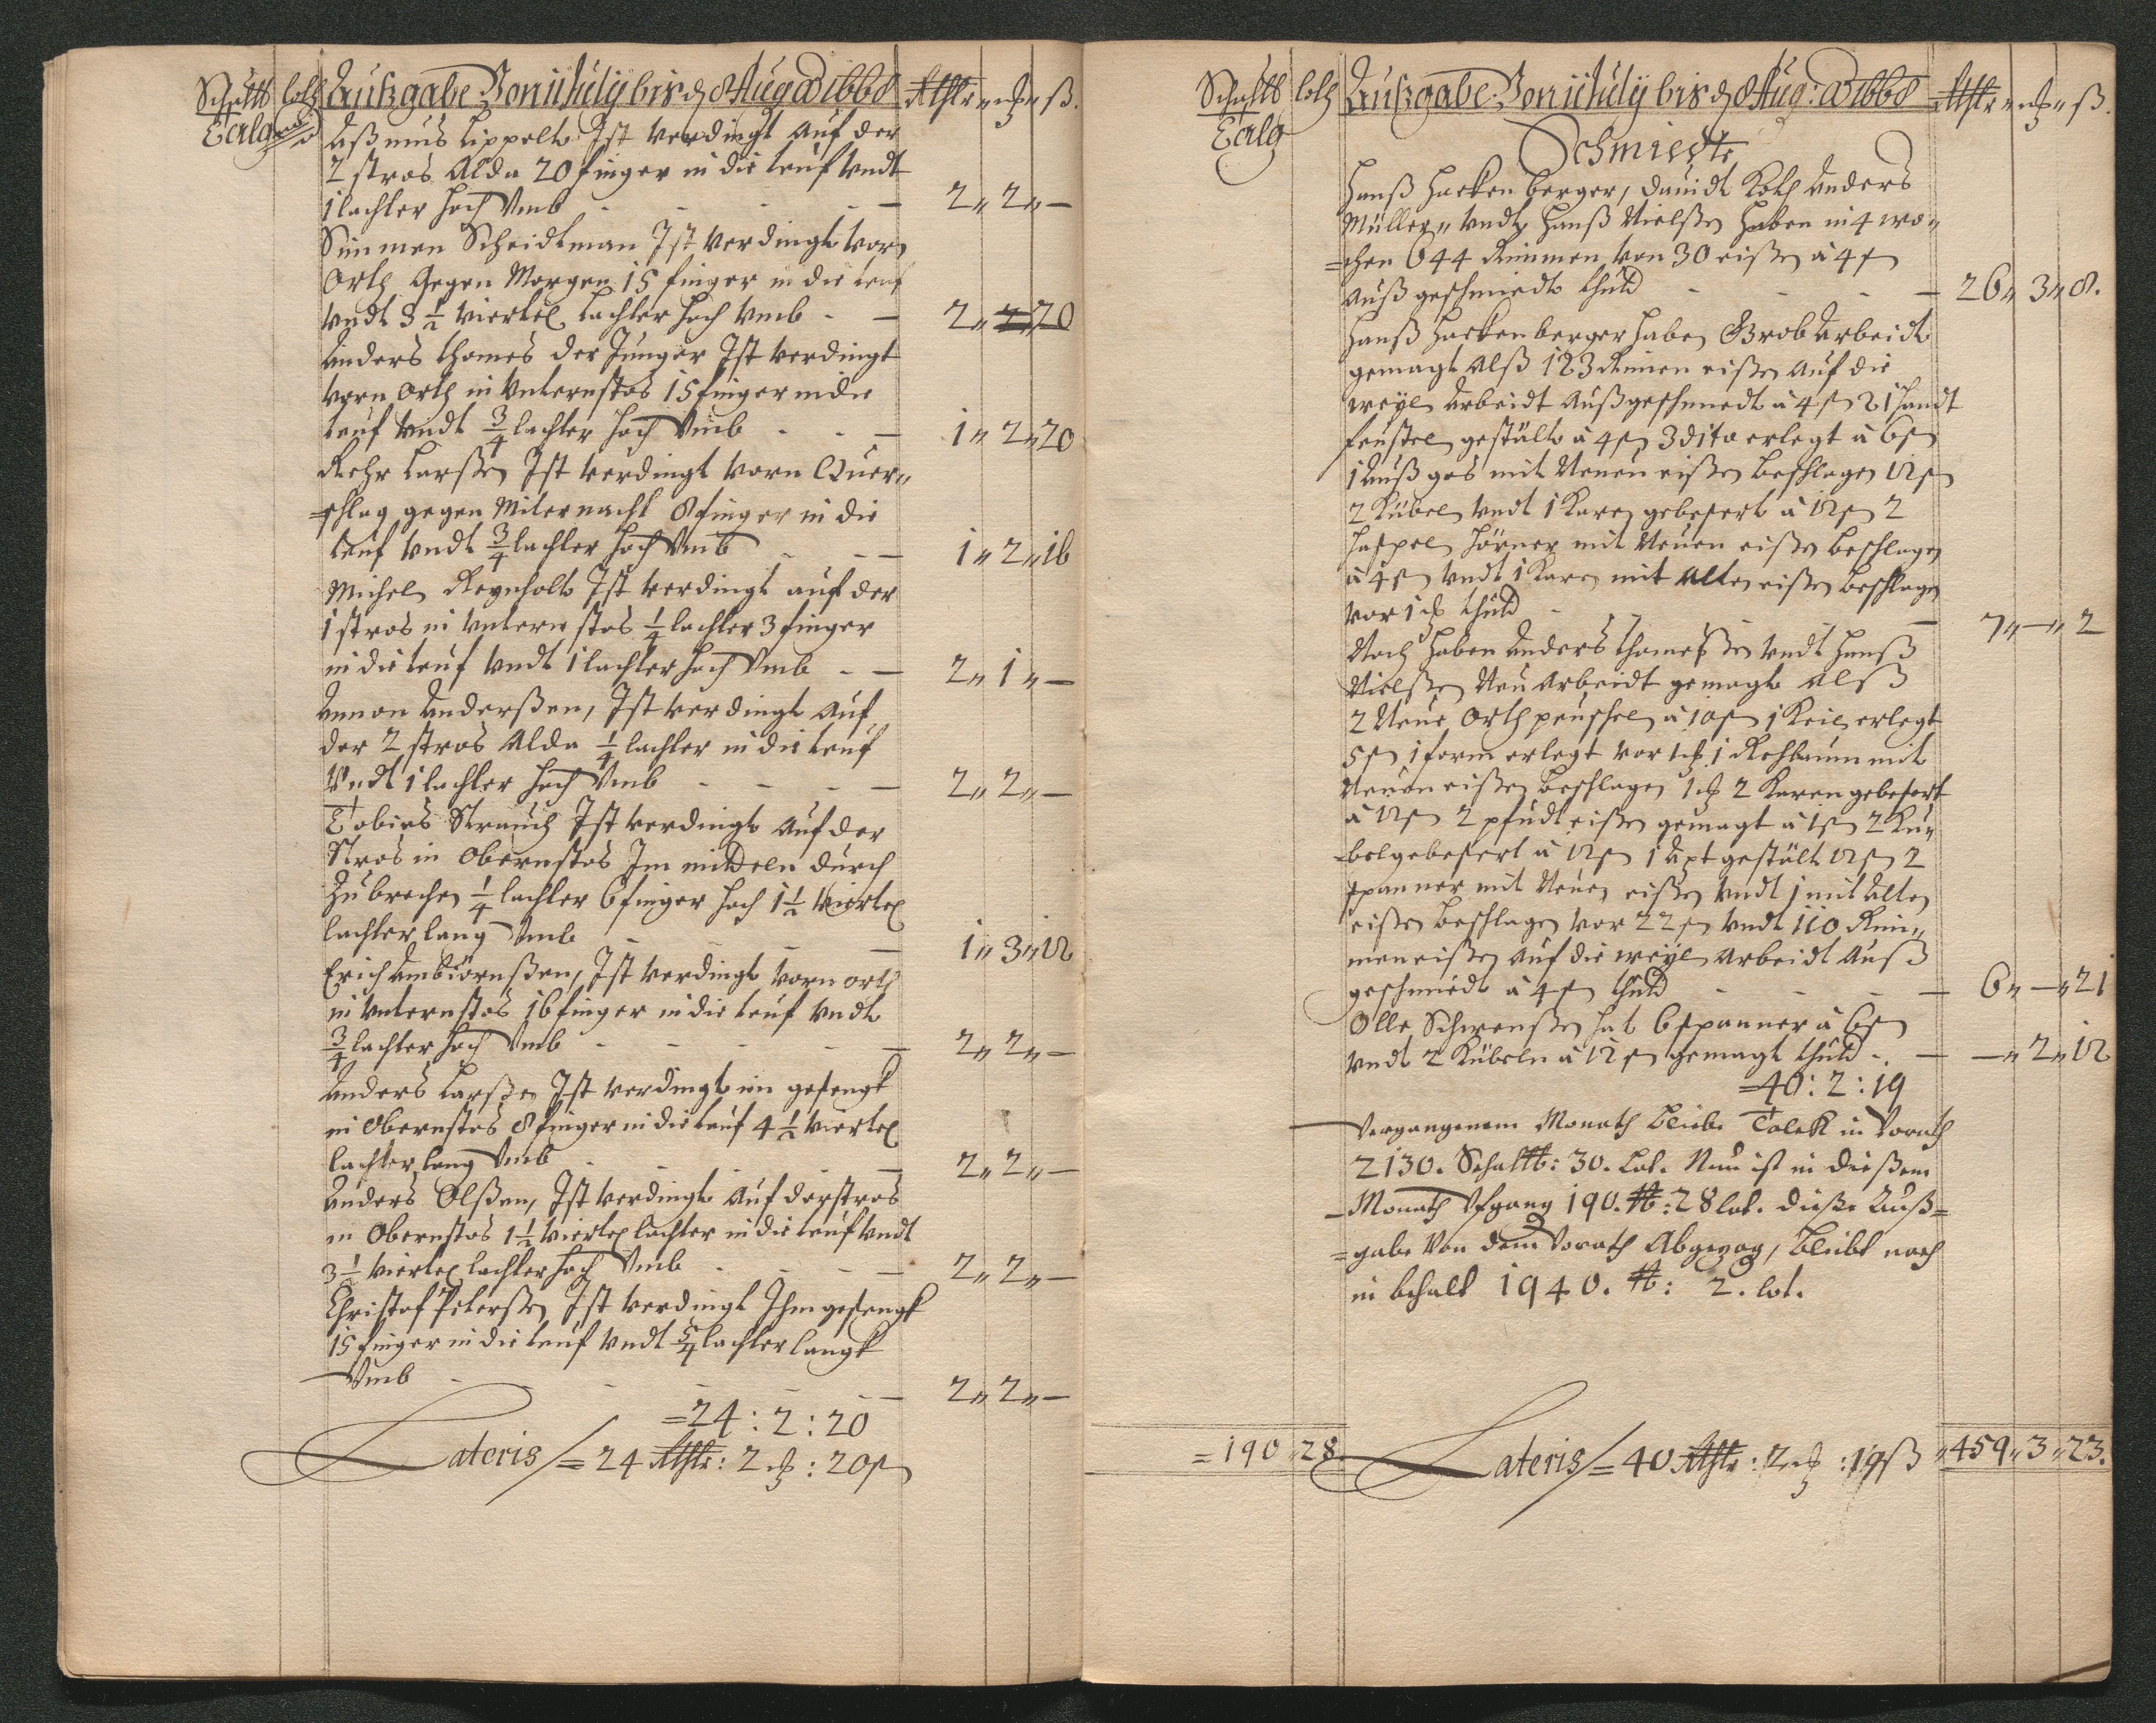 Schaltt loth Außgabe Von 11 Julij bis d. 8 Aug: Ao 1668 Rthlr ß.
Talg
Aßmus Lippelt Ist verdingt auf der
2 stros Alda 20 finger in die teuf vndt
1 lachter hoch Vmb - - - 2 „ 2 „ —
Simmen Scheidtman Ist verdingt vorn
Orth gegen Morgen 15 finger in die teuf
vndt 3 1/2 viertel lachter hoch Vmb - — 2 „ 20
Anders thomes der Junger Ist verdingt
vorn Orth in Vnternstos 15 finger in die
teuf vndt 3/4 lachter hoch Vmb - - — 1 „ 2 „ 20
Larßen Ist verdingt vorn Quer„
=schlag gegen Miternacht 8 finger in die
teuf vndt 3/4 lachter hoch Vmb - - — 1 „ 2 „ 16
Michel Reynholt Ist verdingt auf der
1 stros in Vntern stos 1/4 lachter 3 finger
in die teuf vndt 1 lachter hoch Vmb - — 2 „ 1 „ —
Amon Anderßen, Ist verdingt auf
der 2 stros Alda 1/4 lachter in die teuf
Vndt 1 lachter hoch Vmb - - - — 2 „ 2 „ —
Tobias Strauch Ist verdingt auf der
Stros in Obernstos Im mitteln durch
Zu brechen 1/4 lachter 6 finger hoch 1 1/2 viertel
lachter lang Vmb - - - — 1 „ 3 „ 12
Erich Ambiörnßen, Ist verdingt vorn orth
in Vnternstos 16 finger in die teuf vndt
3/4 lachter hoch Vmb - - - - — 2 „ 2 „ —
Anders Larßen Ist verdingt im gesengk
in Obernstos 8 finger in die teuf 4 1/2 viertel
lachter lang Vmb - - - — 2 „ 2 „ —
Anders Olßen, Ist verdingt auf der stros
in Obernstos 1 1/2 viertel lachter in die teuf vndt
3 1/2 viertel lachter hoch Vmb - - - — 2 „ 2 „ —
Christof Peterßen Ist verdingt Ihm gesengk
15 finger in die teuf vndt 5/4 lachter langk
Vmb - - - - — 2 „ 2 „ —
= 24 : 2 : 20
Lateris / = 24 Rthlr : 2 : 20 ß
Schaltt loth Außgabe Von 11 Julij bis d. 8 Aug: Ao 1668 Rthlr ß.
Talg
Schmiedte
Hanß Hackenberger, Dauidt Koth Anders
Müller „ vndt Hanß Nielßen haben in 4 wo„
=chen 644 Rimmen von 30 eißen à 4 ß
auß geschmiedt thutd - - - — 26 „ 3 „ 8.
Hanß Hackenberger haben Grob Arbeidt
gemagt Alß 123 Rimen eißen auf die
weyl Arbeidt Außgeschmiedt à 4 ß 21 handt
feustel gestält à 4 ß 3 dito erlegt à 6 ß
1 Außgos mit Neuen eißen beschlagen 12 ß
2 Kübel vndt 1 Karen gebesert à 12 ß 2
haspel hörner mit Neuen eißen beschlagen
à 4 ß vndt 1 Karen mit alten eißen beschlagen
vor 1 thutd - - - — 7 „ — „ 2
Noch haben Anders thomeßen vndt Hanß
Nielßen Neu Arbeidt gemagt Alß
2 Neue Orth peuschel à 10 ß 1 Keil erlegt
5 ß 1 form erlegt vor 1 1 Rehbaum mit
Neuen eißen beschlagen 1 2 Karen gebesert
à 12 ß 2 pfudt eißen gemagt à 1 ß 2 Ku„
=bel gebesert à 12 ß 1 Axt gestält 12 ß 2
spanner mit Neuen eißen vndt 1 mit Alten
eißen beschlagen vor 22 ß vndt 110 Rim„
men eißen auf die weyl Arbeidt Auß
geschmiedt à 4 ß thutd - - - — 6 „ — „ 21
Olle Schwenßen hat 6 spanner à 6 ß
vndt 2 Kübeln à 12 ß gemagt thutd - — — „ 2 „ 12
= 40 : 2 : 19
Vergangenem Monath bliebe Talck in Vorath
2130. Schaltt: 30. Lot. Nun ist in dießem
Monath Vfgang 190. ℔: 28 lot. dieße Auß=
=gabe Von dem Vorath Abgezog, bleibt noch
in behalt 1940. ℔: 2. lot.
= 190 „ 28. Lateris / = 40 Rthlr : 2 : 19 ß „ 459 „ 3 „ 23.